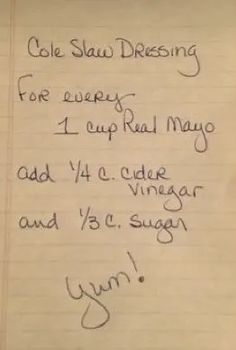 Cole Slaw Dressing
For every
1 cup Real Mayo
add 1/4 c. cider
vinegar
and 1/3 c. Sugar
yum!